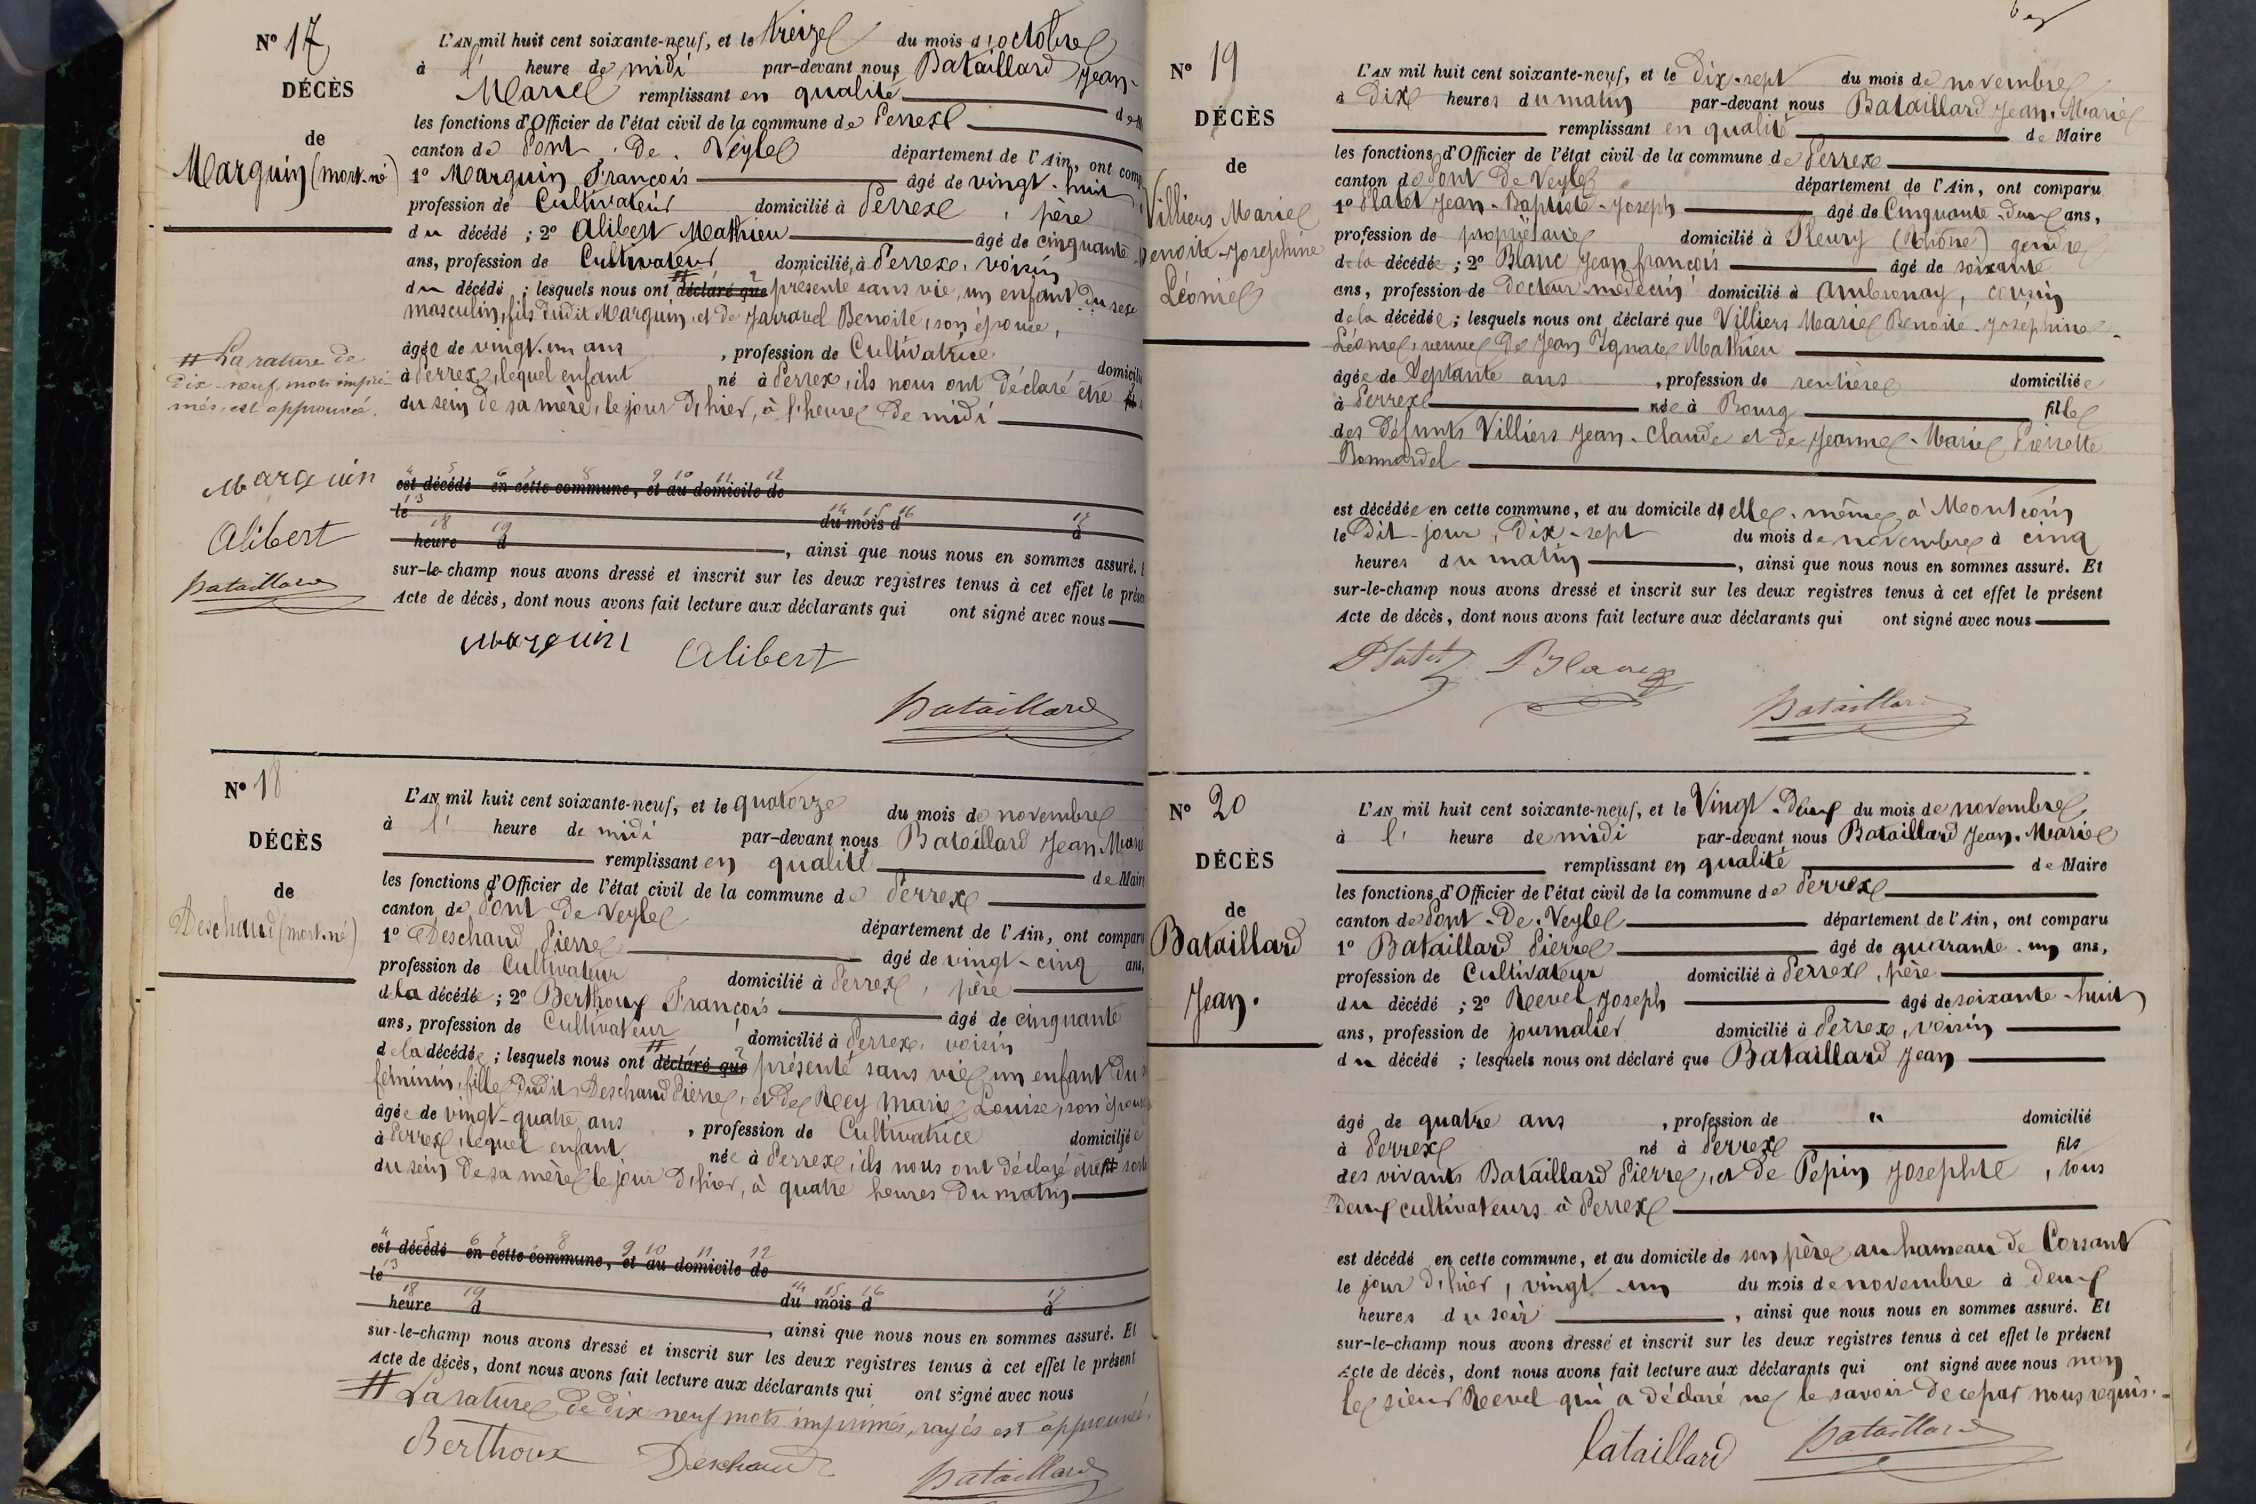 N° 17
DÉCÈS
de
Marguin (mort-né)
L'AN mil huit cent soixante-neuf, et le treize du mois d'octobre
à l' heure de midi par-devant nous Bataillard Jean-
Marie remplissant en qualité de M
les fonctions d'Officier de l'état civil de la commune de Perrex
canton de Pont-de-Veyle département de l'Ain, ont comp
1° Marguin François âgé de vingt-huit
profession de Cultivateur domicilié à Perrex, père
du décédé ; 2° Alibert Mathieu âgé de cinquante
ans, profession de Cultivateur domicilié à Perrex, voisin
du décédé ; lesquels nous ont déclaré que présenté sans vie, un enfant du sexe
masculin, fils dudit Marguin et de Jarravel Benoite, son épouse,
âgée de vingt-un ans, profession de Cultivatrice domicili
à Perrex, lequel enfant né à Perrex, ils nous ont déclaré être
du sein de sa mère, le jour d'hier, à l'heure de midi
# La rature de
dix-neuf mots impri-
més, est approuvée.
Marguin
Alibert
Bataillard
4 5 6 7 8 9 10 11 12
est décédé en cette commune, et au domicile de
13 14 15 16 17
le du mois d à
18 19
heure d , ainsi que nous nous en sommes assuré. E
sur-le-champ nous avons dressé et inscrit sur les deux registres tenus à cet effet le prése
Acte de décès, dont nous avons fait lecture aux déclarants qui ont signé avec nous
Marguin Alibert
Bataillard
N° 18
DÉCÈS
de
Deschaud (mort-né)
L'AN mil huit cent soixante-neuf, et le quatorze du mois de novembre
à l' heure de midi par-devant nous Bataillard Jean Marie
remplissant en qualité de Maire
les fonctions d'Officier de l'état civil de la commune de Perrex
canton de Pont de Veyle département de l'Ain, ont comparu
1° Deschaud Pierre âgé de vingt-cinq ans,
profession de Cultivateur domicilié à Perrex, père
de la décédée ; 2° Berthoux François âgé de cinquante
ans, profession de Cultivateur domicilié à Perrex, voisin
de la décédée ; lesquels nous ont déclaré que présenté sans vie, un enfant du
féminin, fille dudit Deschaud Pierre, et de Rey Marie Louise, son épouse
âgée de vingt-quatre ans, profession de Cultivatrice domiciliée
à Perrex, lequel enfant née à Perrex, ils nous ont déclaré être
du sein de sa mère le jour d'hier, à quatre heures du matin
4 5 6 7 8 9 10 11 12
est décédé en cette commune, et au domicile de
13 14 15 16 17
le du mois d à
18 19
heure d , ainsi que nous nous en sommes assuré. Et
sur-le-champ nous avons dressé et inscrit sur les deux registres tenus à cet effet le présent
Acte de décès, dont nous avons fait lecture aux déclarants qui ont signé avec nous
# La rature de dix neuf mots imprimés, rayés est approuvée.
Berthoux Deschaud Bataillard
N° 19
DÉCÈS
de
Villiers Marie
Benoite-Josephine
Léonie
L'AN mil huit cent soixante-neuf, et le dix-sept du mois de novembre
à dix heures du matin par-devant nous Bataillard Jean-Marie
remplissant en qualité de Maire
les fonctions d'Officier de l'état civil de la commune de Perrex
canton de Pont de Veyle département de l'Ain, ont comparu
1° Platet Jean-Baptiste-Joseph âgé de Cinquante-deux ans,
profession de propriétaire domicilié à Fleury (Rhône) gendre
de la décédée ; 2° Blanc Jean françois âgé de soixante
ans, profession de Docteur-médecin domicilié à Ambronay, cousin
de la décédée ; lesquels nous ont déclaré que Villiers Marie Benoite-Joséphine-
Léonie, veuve de Jean Ignace Mathieu
âgée de Septante ans, profession de rentière domiciliée
à Perrex née à Bourg fille
des défunts Villiers Jean-Claude et de Jeanne-Marie Pierrette
Bonnardel
est décédée en cette commune, et au domicile d'elle-même, à Montcoin
le dit jour, dix-sept du mois de novembre à cinq
heures du matin, ainsi que nous nous en sommes assuré. Et
sur-le-champ nous avons dressé et inscrit sur les deux registres tenus à cet effet le présent
Acte de décès, dont nous avons fait lecture aux déclarants qui ont signé avec nous
Platet Blanc
Bataillard
N° 20
DÉCÈS
de
Bataillard
Jean.
L'AN mil huit cent soixante-neuf, et le Vingt-deux du mois de novembre
à l' heure de midi par-devant nous Bataillard Jean-Marie
remplissant en qualité de Maire
les fonctions d'Officier de l'état civil de la commune de Perrex
canton de Pont-de-Veyle département de l'Ain, ont comparu
1° Bataillard Pierre âgé de quarante-un ans,
profession de Cultivateur domicilié à Perrex, père
du décédé ; 2° Reevel Joseph âgé de soixante-huit
ans, profession de journalier domicilié à Perrex, voisin
du décédé ; lesquels nous ont déclaré que Bataillard Jean
âgé de quatre ans, profession de " domicilié
à Perrex né à Perrex fils
des vivants Bataillard Pierre, et de Pepin Josephte, tous
deux cultivateurs à Perrex
est décédé en cette commune, et au domicile de son père, au hameau de Corsant
le jour d'hier, vingt-un du mois de novembre à deux
heures du soir, ainsi que nous nous en sommes assuré. Et
sur-le-champ nous avons dressé et inscrit sur les deux registres tenus à cet effet le présent
Acte de décès, dont nous avons fait lecture aux déclarants qui ont signé avec nous non
le sieur Reevel qui a déclaré ne le savoir de ce par nous requis.
Bataillard Bataillard